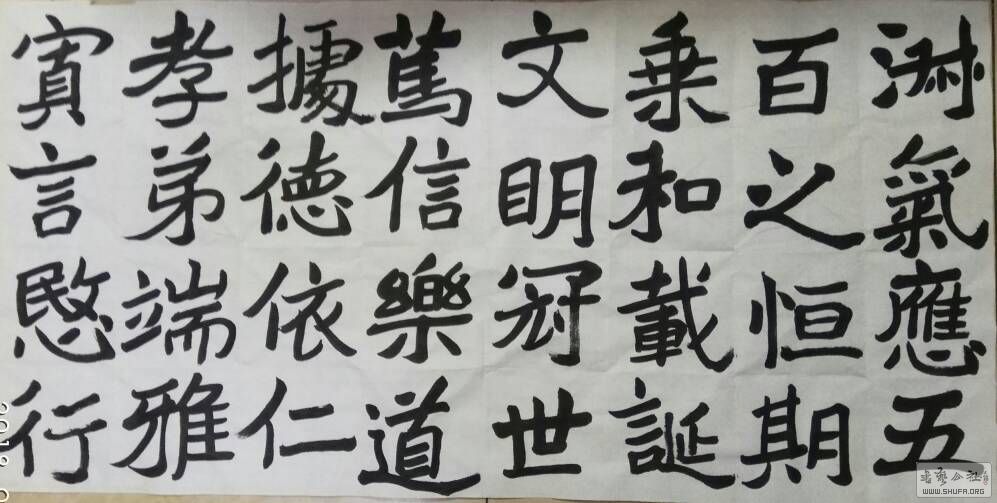 淑氣應五
百之恒期
乘和載誕
文明冠世
篤信樂道
據德依仁
孝弟端雅
寡言愍行
书艺公社
WWW.SHUFA.ORG